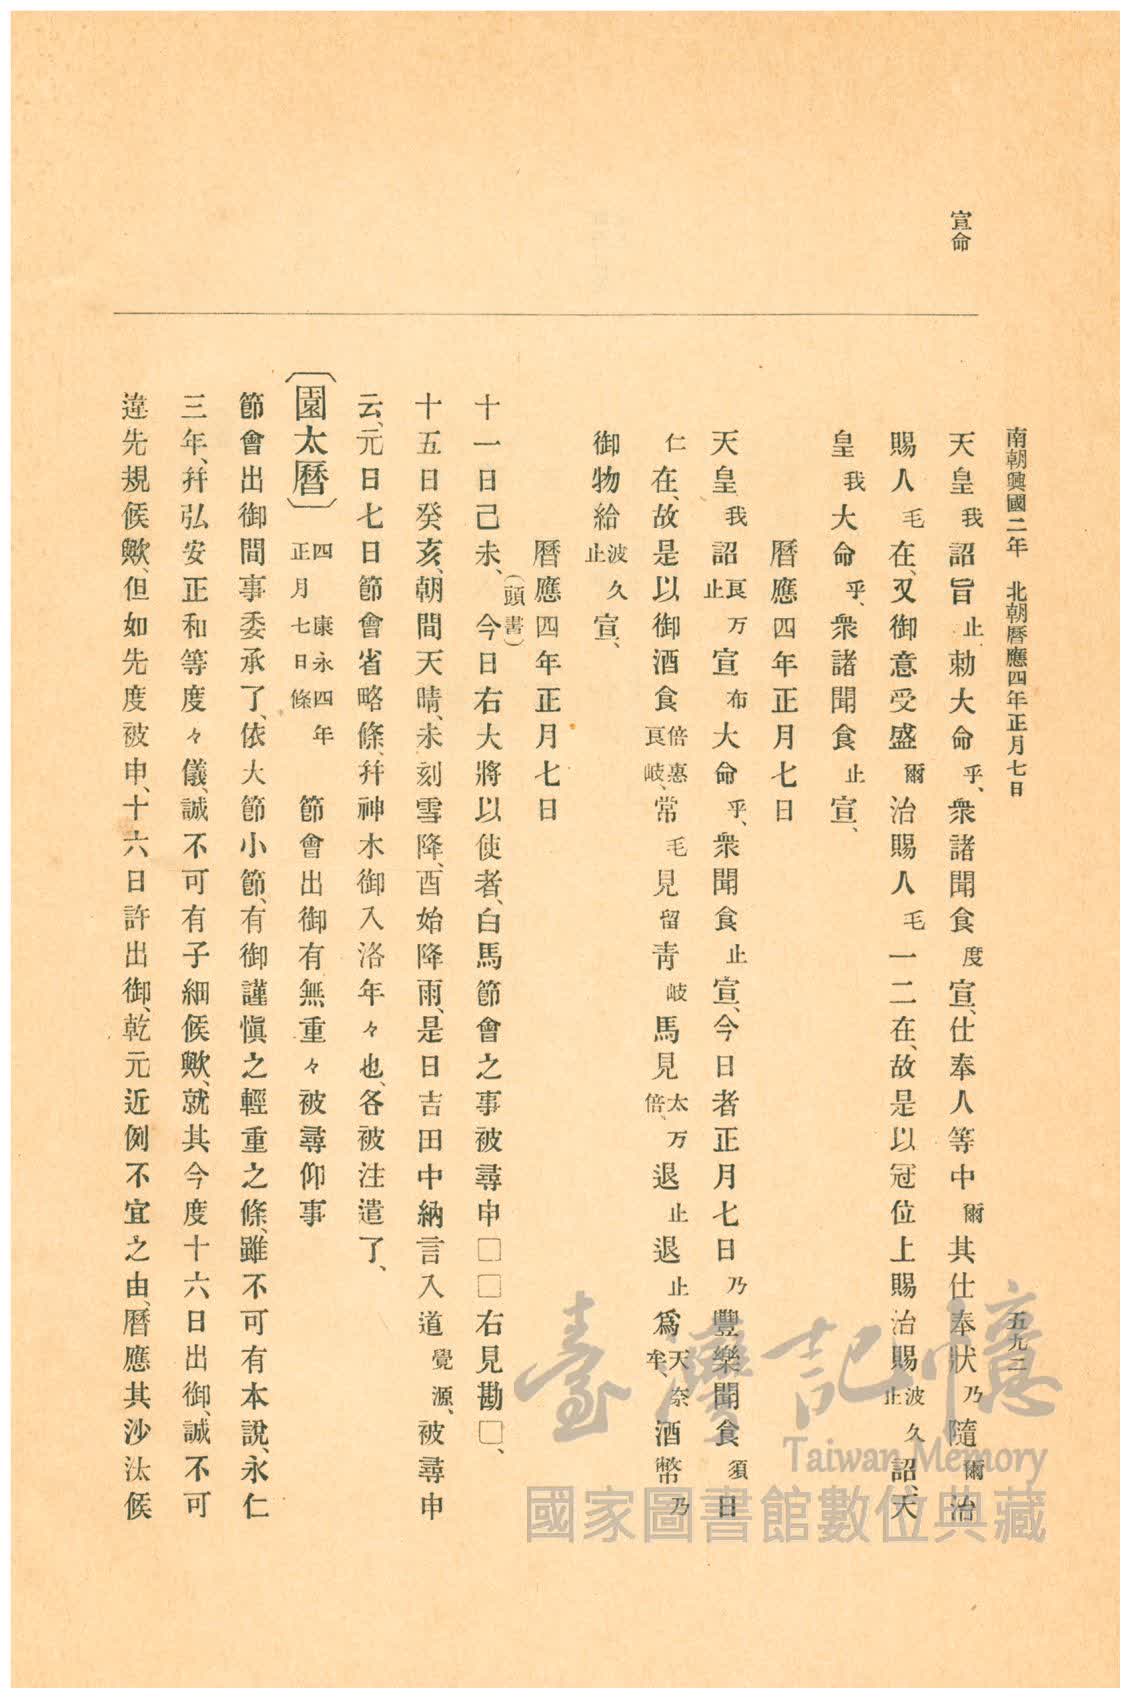 南朝興國二年　北朝曆應四年正月七日　五九二
宣命
天皇我詔旨止勅大命乎、衆諸聞食度宣、仕奉人等中爾其仕奉狀乃隨爾治
賜人毛在、又御意受盛爾治賜人毛一二在、故是以冠位上賜治賜波久止詔、天
皇我大命乎、衆諸聞食止宣、
曆應四年正月七日
天皇我詔良万止宣布大命乎、衆聞食止宣、今日者正月七日乃豐樂聞食須日
仁在、故是以御酒食倍惠良岐、常毛見留青岐馬見太万倍、退止退止爲天奈牟、酒幣乃
御物給波久止宣、
曆應四年正月七日
十一日己未、(頭書)今日右大將以使者、白馬節會之事被尋申□□右見勘□、
十五日癸亥、朝間天晴、未刻雪降、酉始降雨、是日吉田中納言入道覺源、被尋申
云、元日七日節會省略條、幷神木御入洛年々也、各被注遣了、
〔園太曆〕四　康永四年正月七日條　節會出御有無重々被尋仰事
節會出御間事委承了、依大節小節、有御謹愼之輕重之條、雖不可有本說、永仁
三年、幷弘安正和等度々儀、誠不可有子細候歟、就其今度十六日出御、誠不可
違先規候歟、但如先度被申、十六日許出御、乾元近例不宜之由、曆應其沙汰候
臺灣記憶
Taiwan Memory
國家圖書館數位典藏